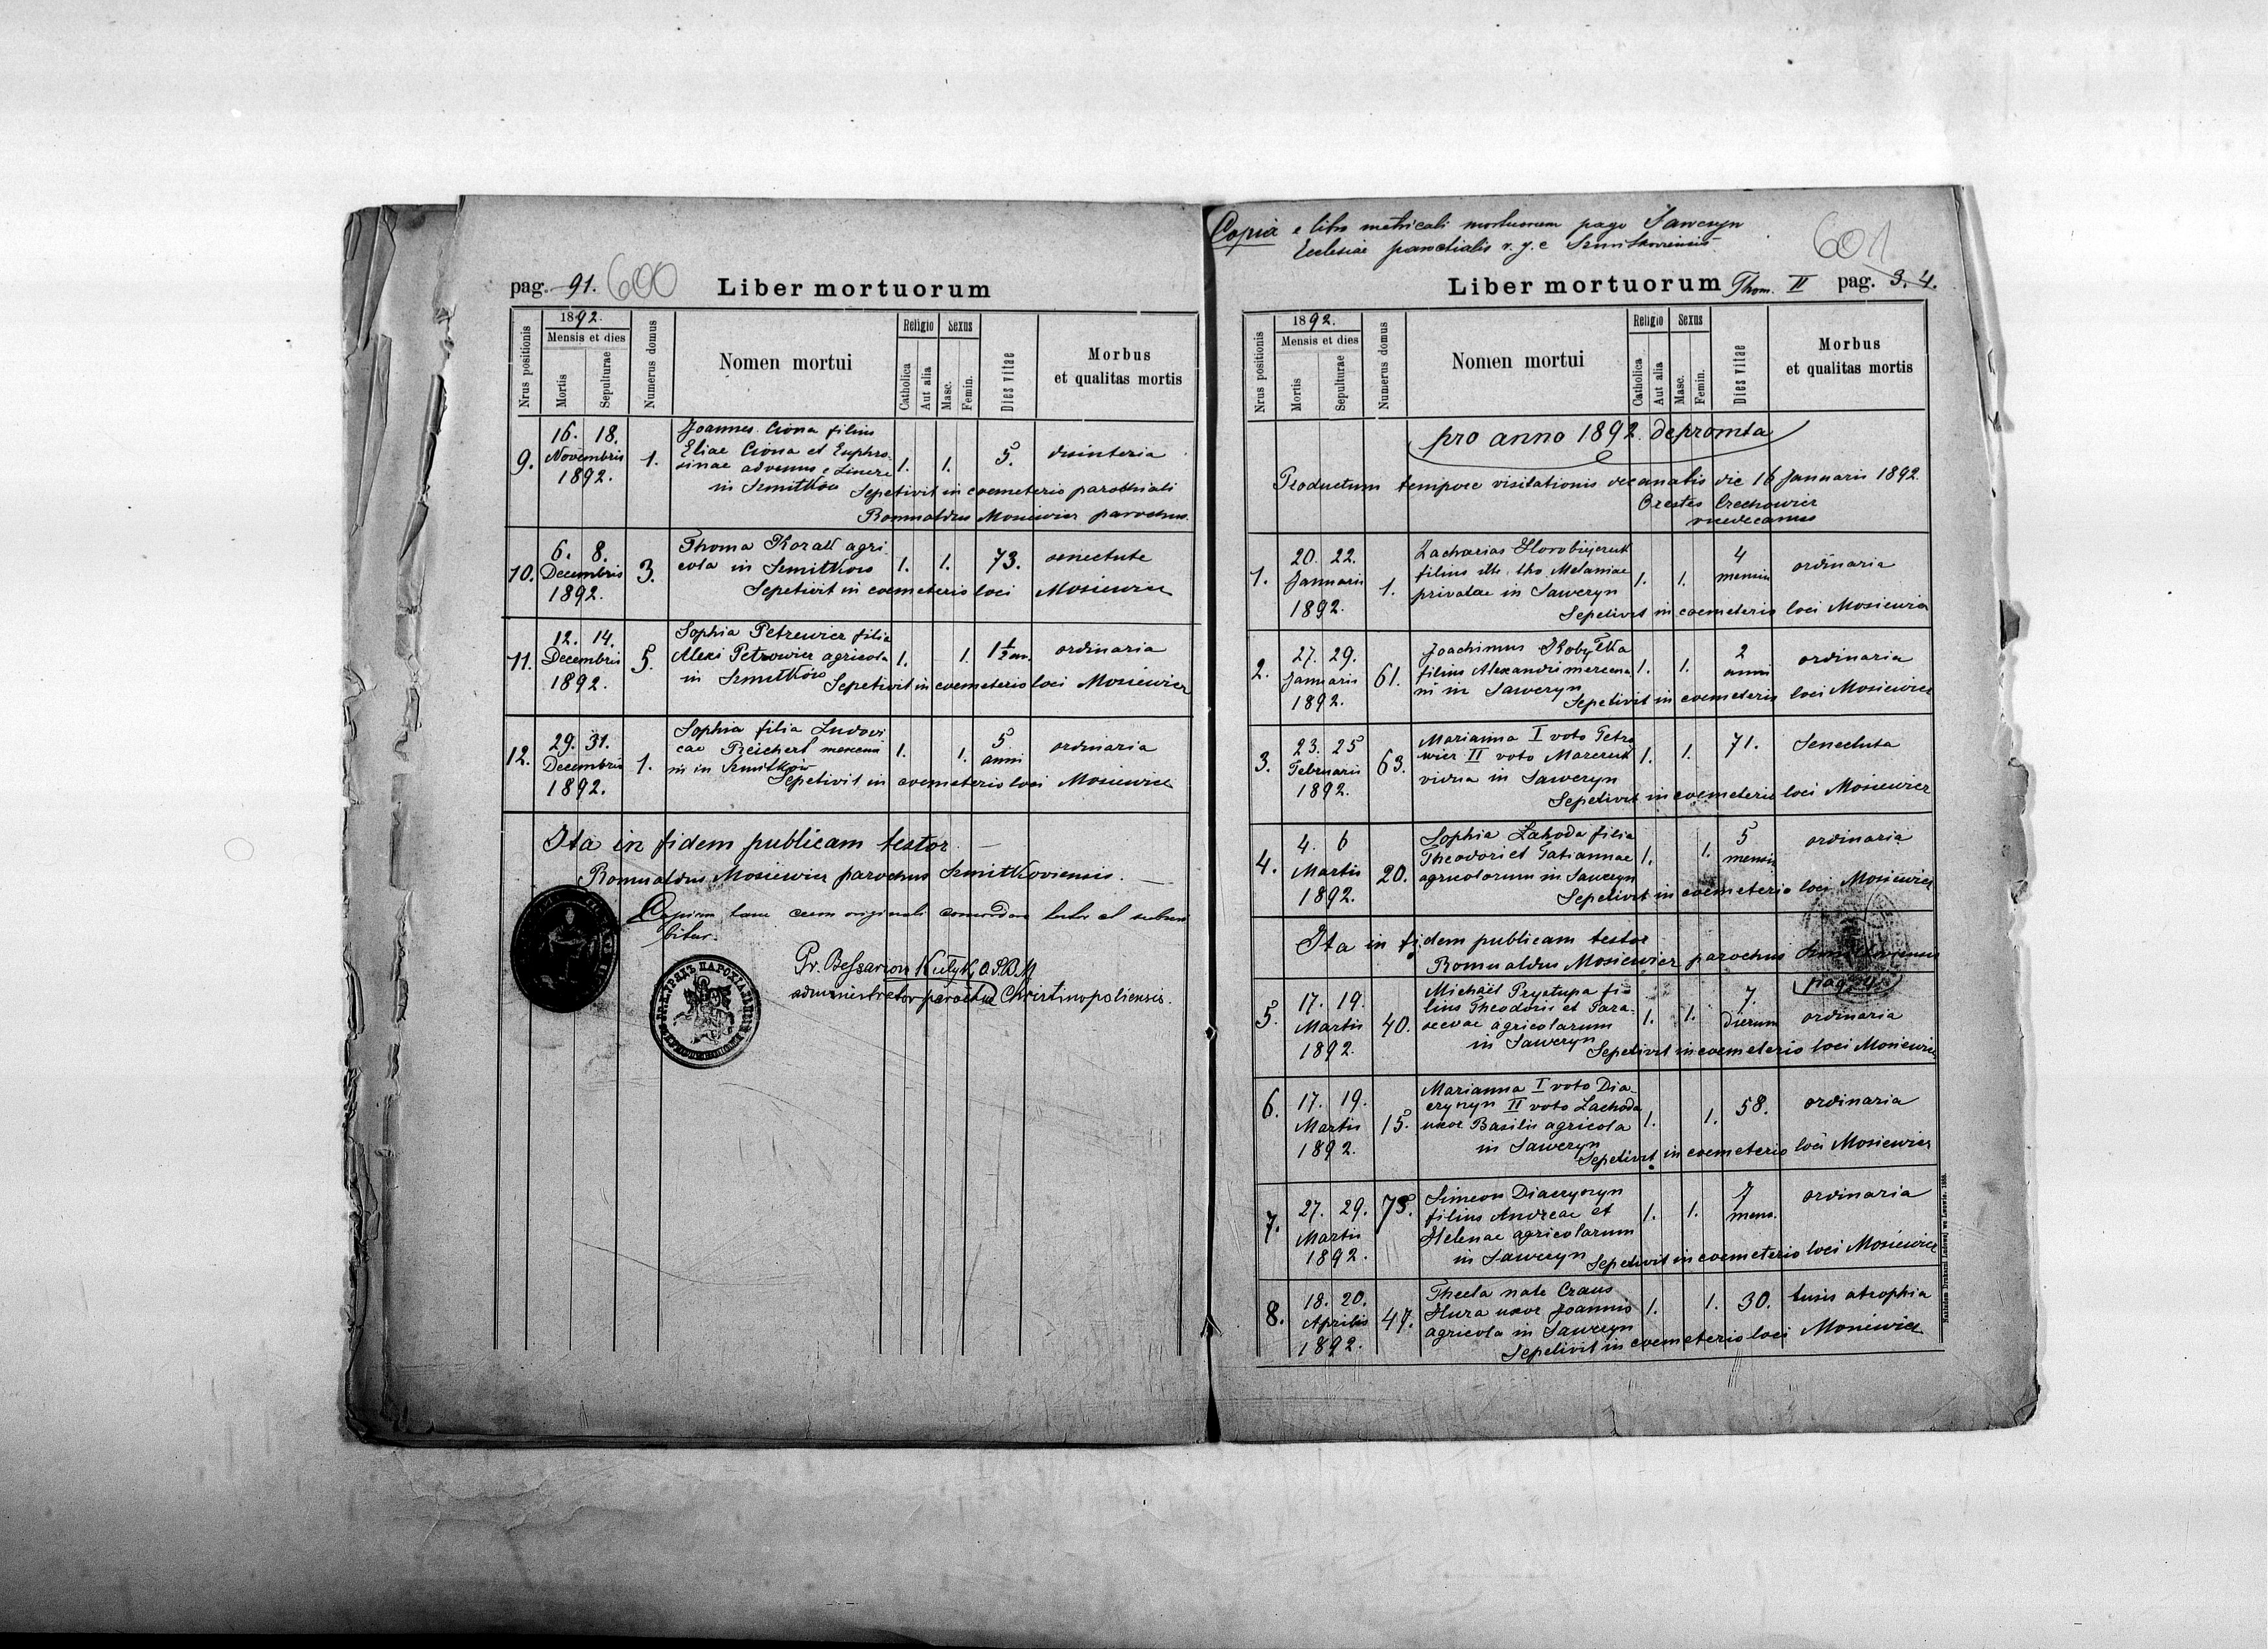 pag. 91. 600
Liber mortuorum
Nrus positionis
1892.
Mensis et dies
Mortis
Sepulturae
Numerus domus
Nomen mortui
Religio
Catholica
Aut alia
Sexus
Masc.
Femin.
Dies vitae
Morbus
et qualitas mortis
9. 16. 18. Novembris 1892. 1.
Joannes Ciona filius
Eliae Ciona et Euphro-
sinae advenus e
in Szmitków
1. 1. 5. disinteria
Sepelivit in coemeterio parochiali
Romualdus Mosiewicz parochus.
10. 6. 8. Decembris 1892. 3.
Thoma Korall agri
cola in Szmitków
1. 1. 73. senectute
Sepelivit in coemeterio loci Mosiewicz
11. 12. 14. Decembris 1892. 5.
Sophia Petrewicz filia
Alexi Petrowicz agricola
in Szmitków
1. 1. 1½ an. ordinaria
Sepelivit in coemeterio loci Mosiewicz
12. 29. 31. Decembris 1892. 1.
Sophia filia Ludovi
cae Reichert mercena
rii in Szmitków
1. 1. 5 anni ordinaria
Sepelivit in coemeterio loci Mosiewicz
Ita in fidem publicam testor
Romualdus Mosiewicz parochus Szmitkoviensis.
Copiam hanc cum originali concordare testor et subscri
bitur.
Pr. Bessarion Kulyk, O.S.B.M
administrator parochiae Christinopoliensis.
Copia e libro metricali mortuorum pago Sawczyn
Ecclesiae parochialis r. g. c Szmitkoviensis
601
Liber mortuorum Thom. II pag. 3. 4.
Nrus positionis
1892.
Mensis et dies
Mortis
Sepulturae
Numerus domus
Nomen mortui
Religio
Catholica
Aut alia
Sexus
Masc.
Femin.
Dies vitae
Morbus
et qualitas mortis
pro anno 1892. depromta
Productum tempore visitationis decanalis die 16 Januaris 1892.
Orestes Czechowicz
vicedecanus
1. 20. 22. Januaris 1892. 1.
Zacharias Horobijczuk
filius ille. tho. Melaniae
privatae in Sawczyn
1. 1. 4 mensiu ordinaria
Sepelivit in coemeterio loci Mosiewicz
2. 27. 29. Januaris 1892. 61.
Joachimus Kobyłka
filius Alexandri mercena
rii in Sawczyn
1. 1. 2 anni ordinaria
Sepelivit in coemeterio loci Mosiewicz
3. 23. 25 Februarii 1892. 63.
Marianna I voto Petro
wicz II voto Mazeruk
vidua in Sawczyn
1. 1. 71. Senectuta
Sepelivit in coemeterio loci Mosiewicz
4. 4. 6 Martis 1892. 20.
Sophia Zahoda filia
Theodori et Tatiannae
agricolarum in Sawczyn
1. 1. 5 mensiu ordinaria
Sepelivit in coemeterio loci Mosiewicz
Ita in fidem publicam testor
Romualdus Mosiewicz parochus Szmitkoviensis
pag. 4.
5. 17. 19. Martis 1892. 40.
Michaël Prystupa fi-
lius Theodoris et Para-
scevae agricolarum
in Sawczyn
1. 1. 7. dierum ordinaria
Sepelivit in coemeterio loci Mosiewicz
6. 17. 19. Martis 1892. 15.
Marianna I voto Dia-
czyszyn II voto Zachoda
uxor Basilii agricola
in Sawczyn
1. 1. 58. ordinaria
Sepelivit in coemeterio loci Mosiewicz
7. 27. 29. Martis 1892. 75.
Simeon Diaczyszyn
filius Andreae et
Helenae agricolarum
in Sawczyn
1. 1. 7 mens. ordinaria
Sepelivit in coemeterio loci Mosiewicz
8. 18. 20. Aprilis 1892. 47.
Thecla nate Craus
Hura uxor Joannis
agricola in Sawczyn
1. 1. 30. tusis atrophia
Sepelivit in coemeterio loci Mosiewicz
Nakładem Drukarni Ludowej we Lwowie.